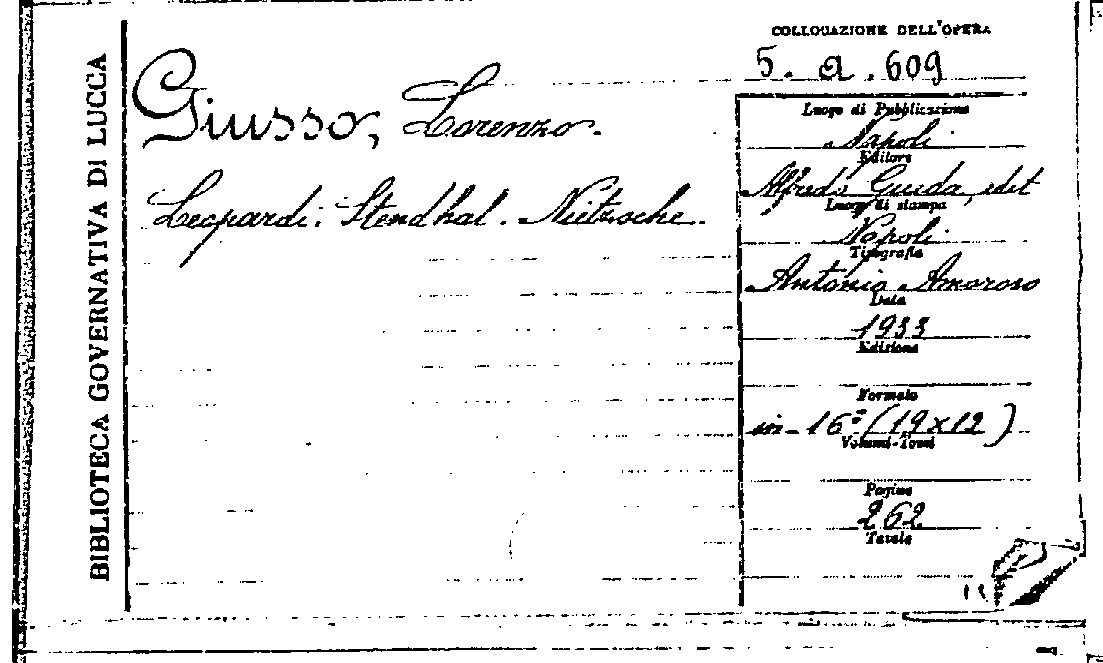 BIBLIOTECA GOVERNATIVA DI LUCCA
Giusso, Lorenzo.
Leopardi. Stendhal. Nietzsche.
COLLOCAZIONE DELL'OPERA
5. a. 609
Luogo di Pubblicazione
Napoli
Editore
Alfredo Guida, edit
Luogo di stampa
Napoli
Tipografia
Antonio Amoroso
Data
1933
Edizione
Formato
in-16º (19x12)
Volumi-Tomi
Pagine
262
Tavole